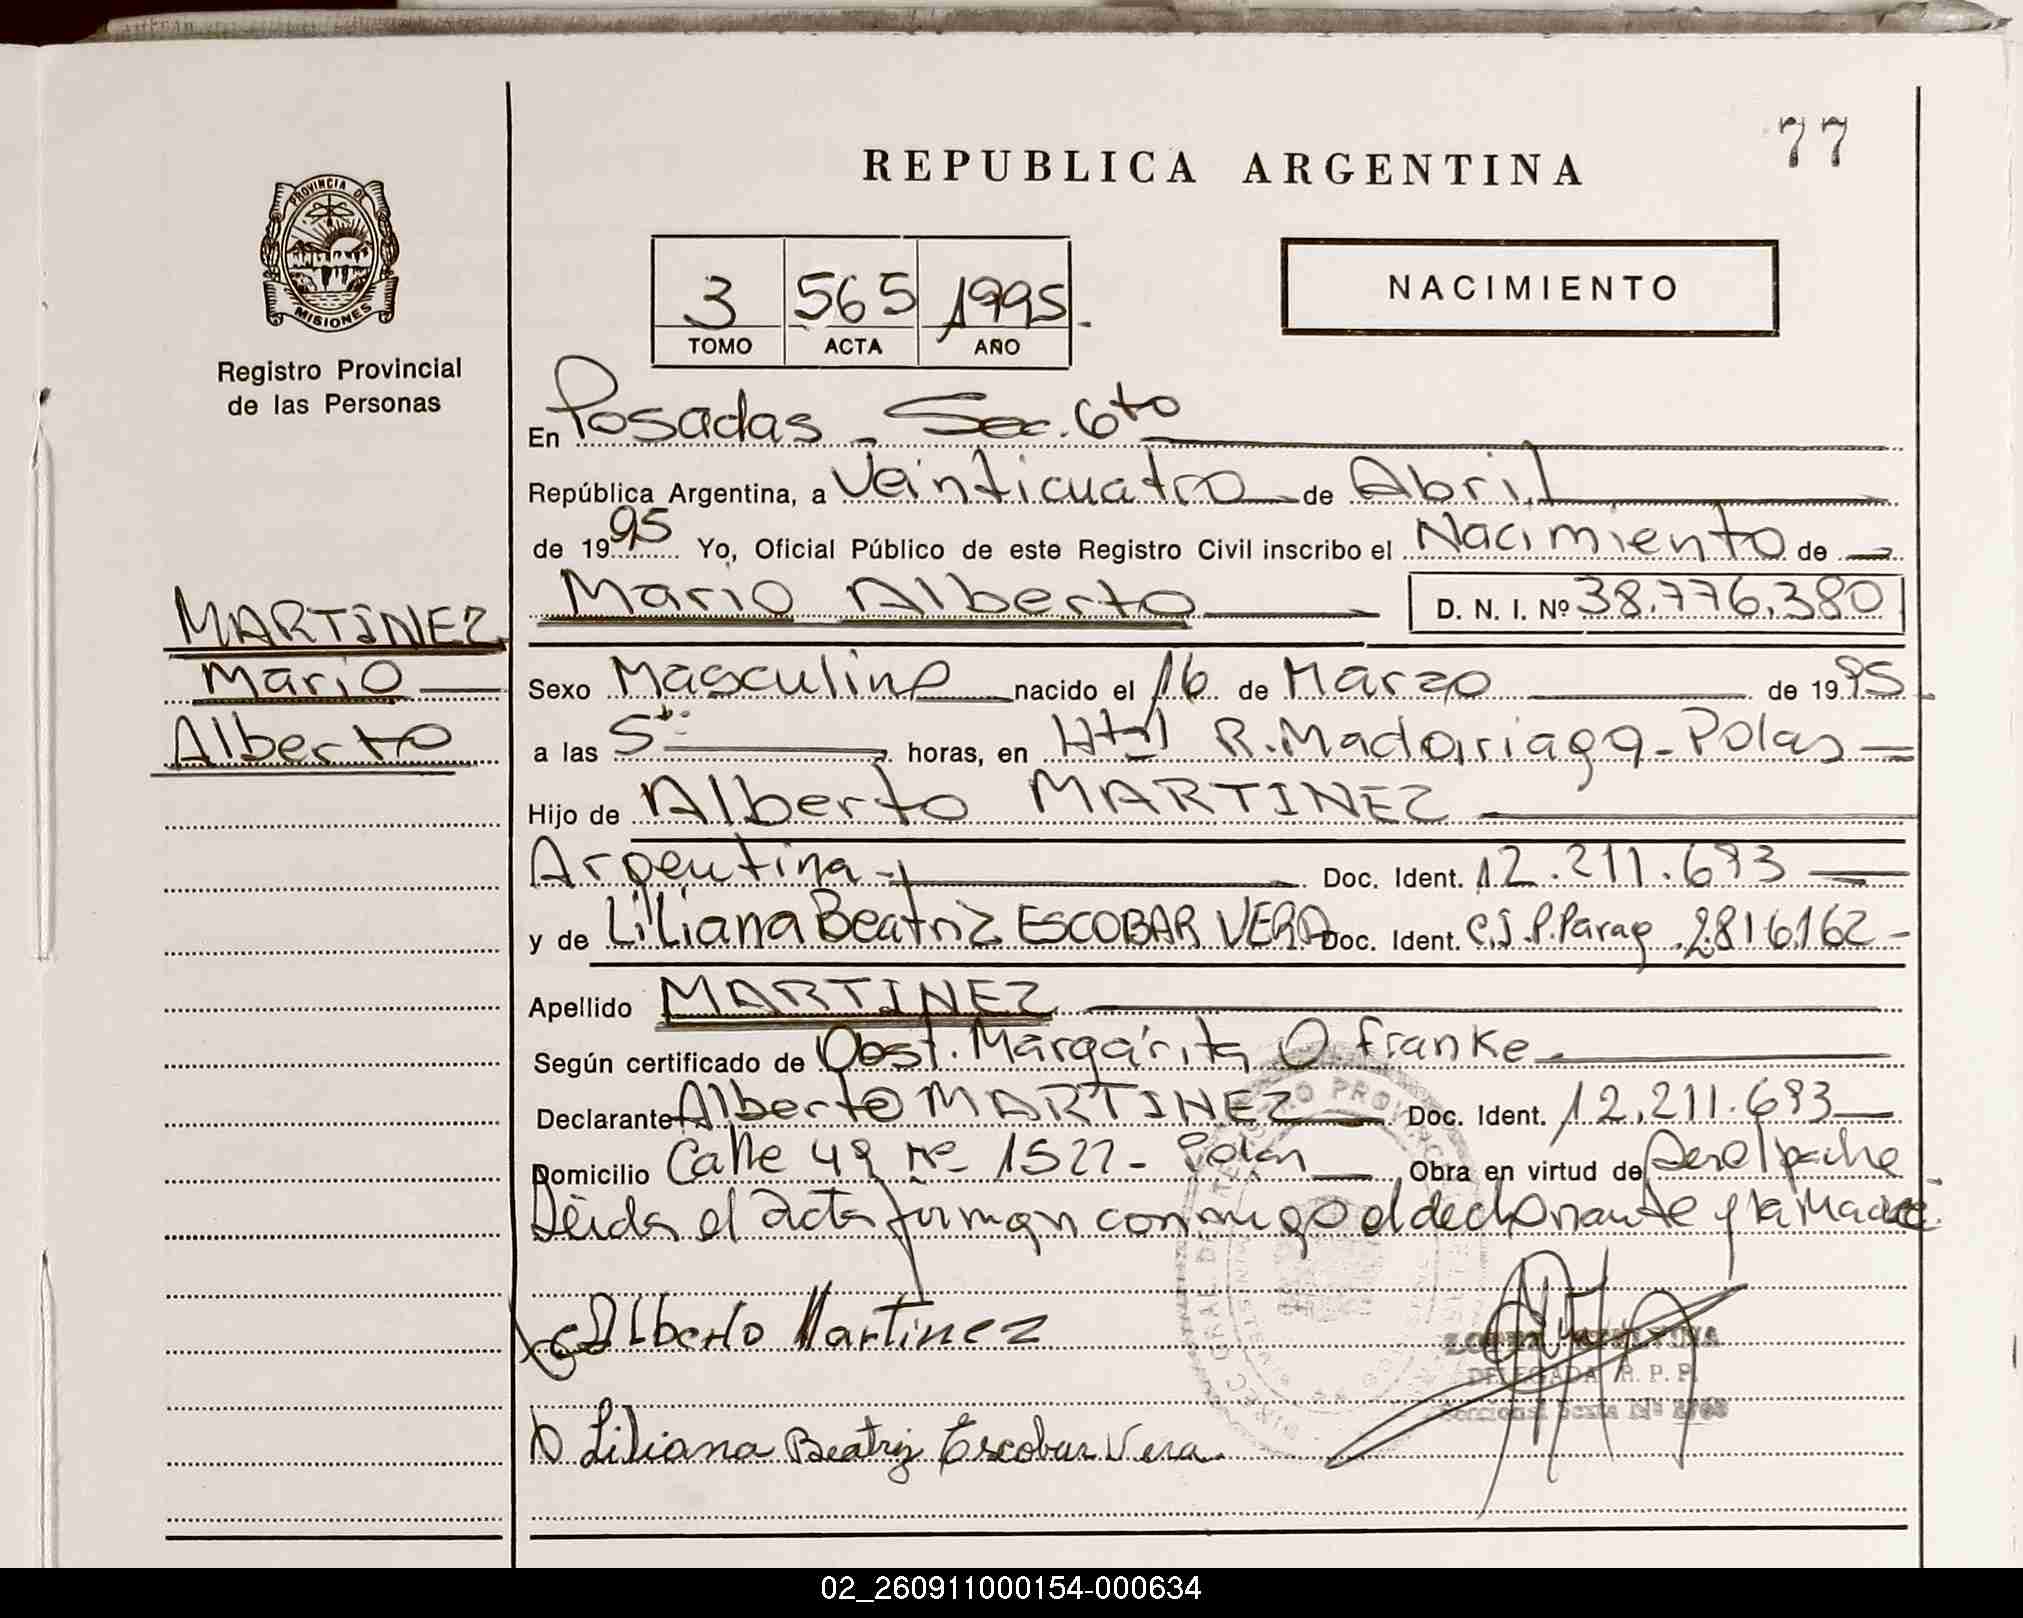 77
REPUBLICA ARGENTINA
PROVINCIA DE
MISIONES
NACIMIENTO
3 565 1995
TOMO ACTA AÑO
Registro Provincial
de las Personas
En Posadas - Sec. 6to
República Argentina, a Veinticuatro de Abril
de 1995 Yo, Oficial Público de este Registro Civil inscribo el Nacimiento de
Mario Alberto D. N. I. Nº 38.776.380
MARTINEZ
Mario
Alberto
Sexo Masculino nacido el 16 de Marzo de 1995
a las 5 horas, en Htal R. Madariaga - Pdas
Hijo de Alberto MARTINEZ
Argentina - Doc. Ident. 12.211.693
y de Liliana Beatriz ESCOBAR VERA Doc. Ident. C.I.P. Parag 2816162 -
Apellido MARTINEZ
Según certificado de Obst. Margarita O. Franke
Declarante Alberto MARTINEZ Doc. Ident. 12.211.693
Domicilio Calle 49 Nº 1522 - Pdas Obra en virtud de
Leida el acta firman conmigo el declarante y la Madre.
Alberto Martinez
DELEGADA R. P. P.
Liliana Beatriz Escobar Vera
02_260911000154-000634